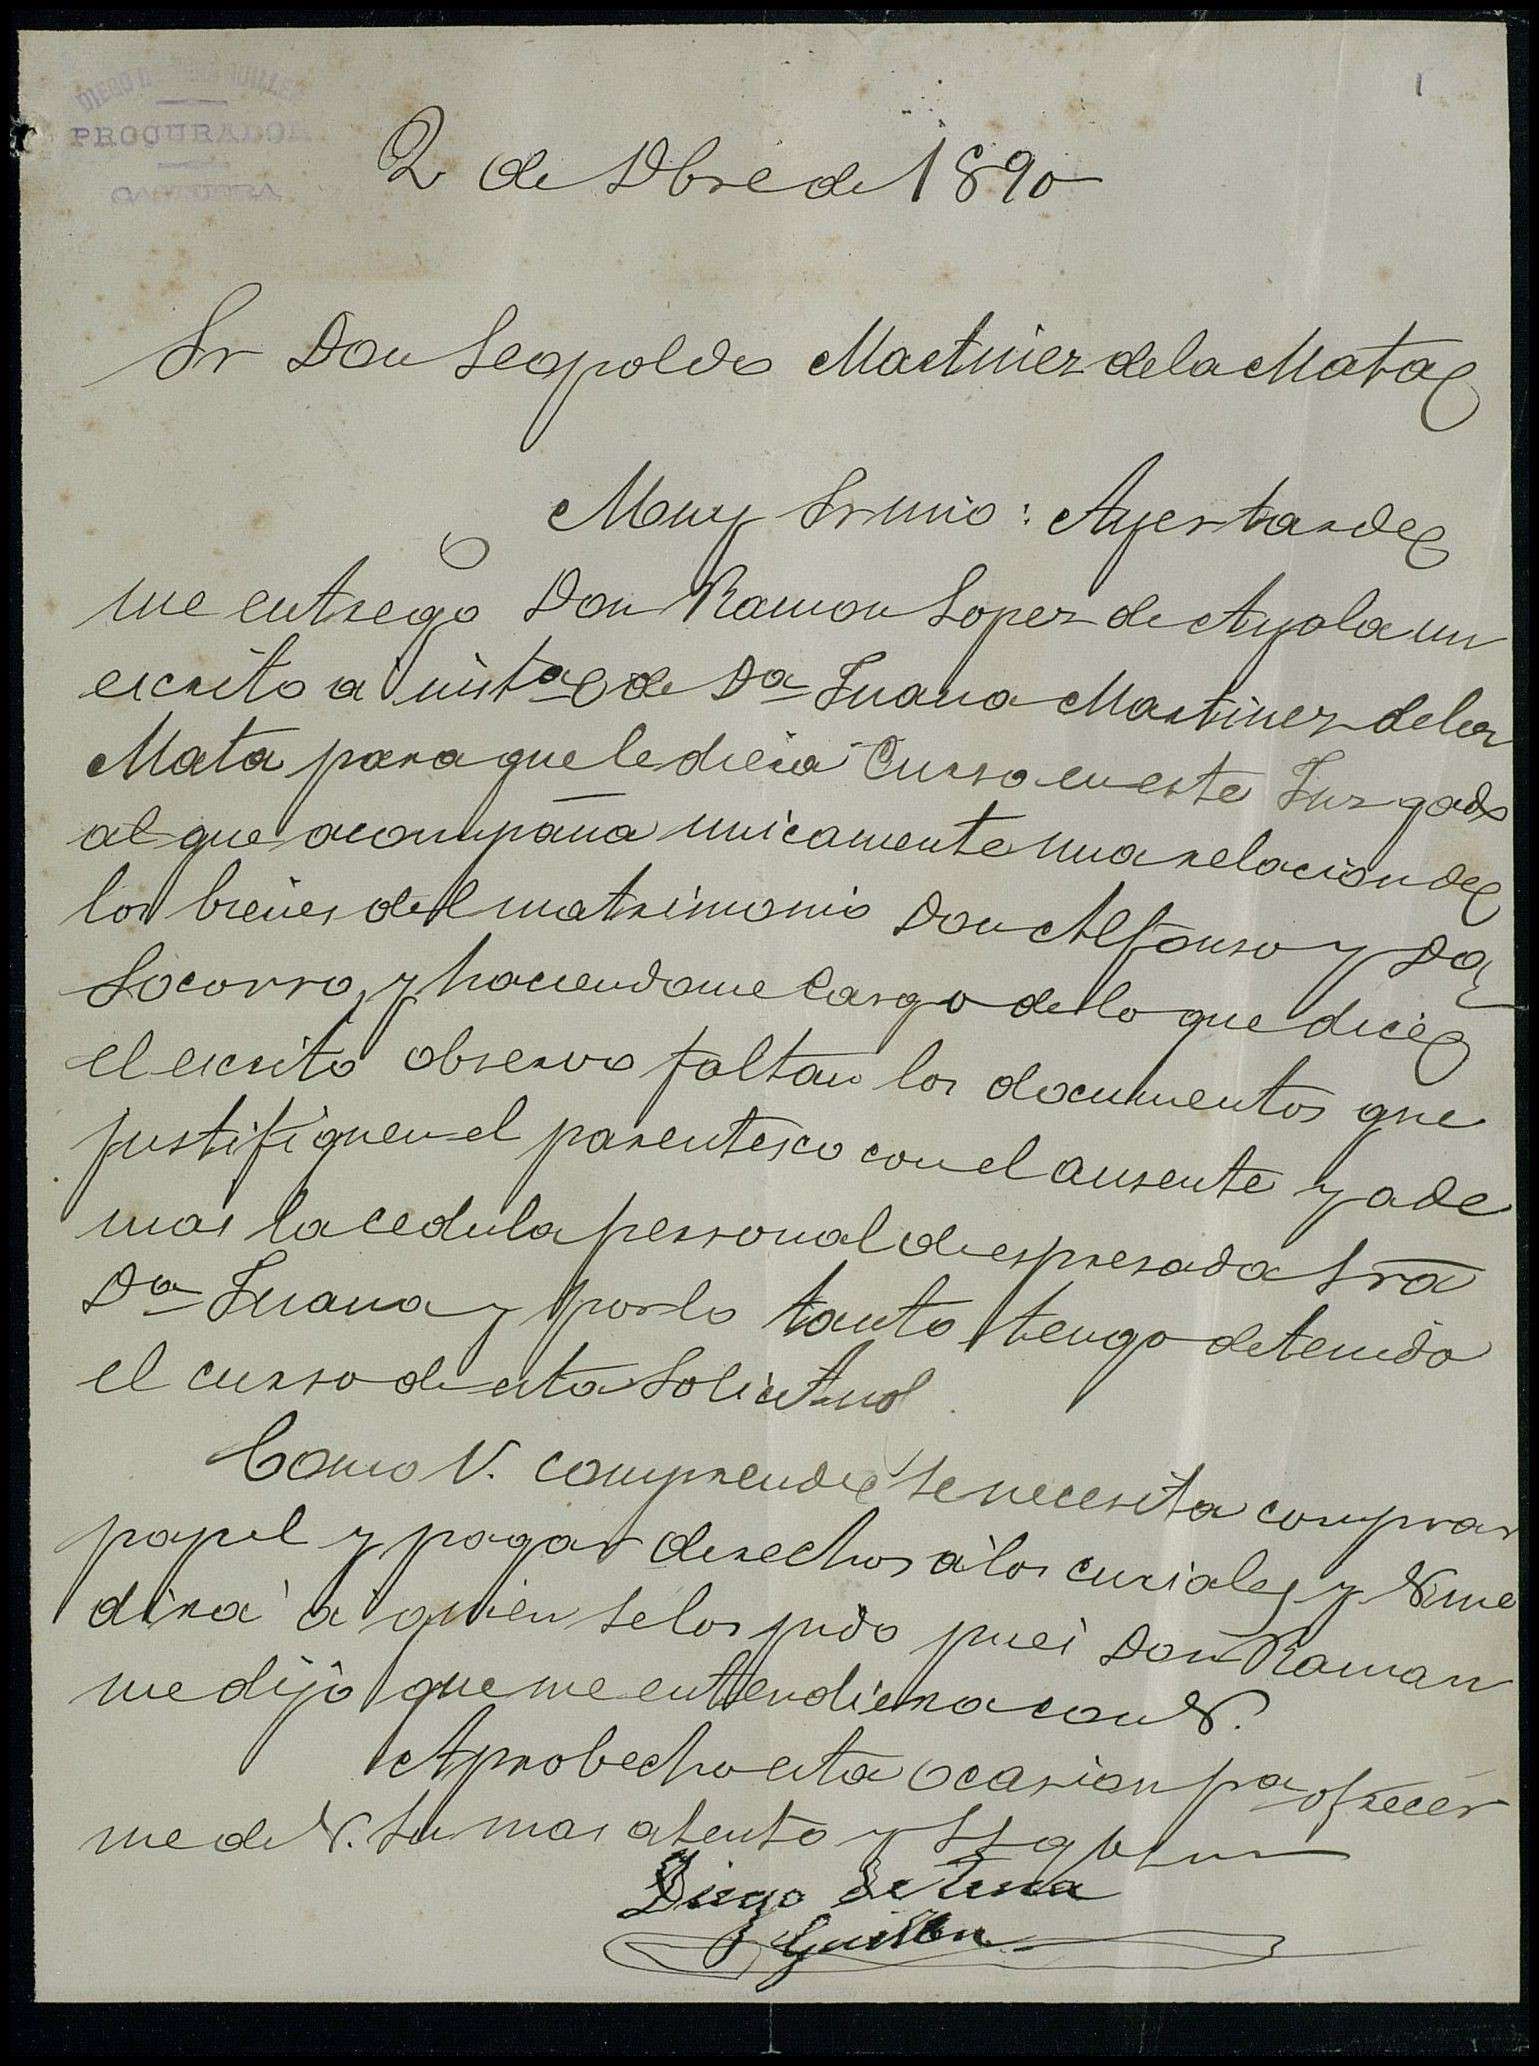 DIEGO DE TENA GUILLEN
PROCURADOR
1
2 de Dbre de 1890
Sr Don Leopoldo Martinez de la Mata
Muy Sr mio: Ayer tarde
me entregó Don Ramon Lopez de Ayala un
escrito á instª de Dª Juana Martinez de la
Mata para que le diera Curso en este Juzgado
al que acompaña unicamente una relacion de
los bienes del matrimonio Don Alfonso y Dª
Socorro, y haciendome Cargo de lo que dice
el escrito observo faltan los documentos que
justifiquen el parentesco con el ausente y ade
mas la cedula personal de espresada Sra
Dª Juana y por lo tanto tengo detenido
el curso de esta Solicitud.
Como V. comprende se necesita comprar
papel y pagar derechos á los curiales y V. me
dirá á quien se los pido pues Don Ramon
me dijo que me entendiera con V.
Aprobecho esta ocasion pa ofrecer
me de V. su mas atento y S S q b s m
Diego de Tena
Guillen